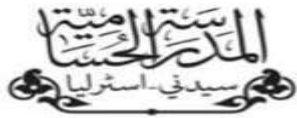 المدرسة الحسامية
سيدني-استرليا